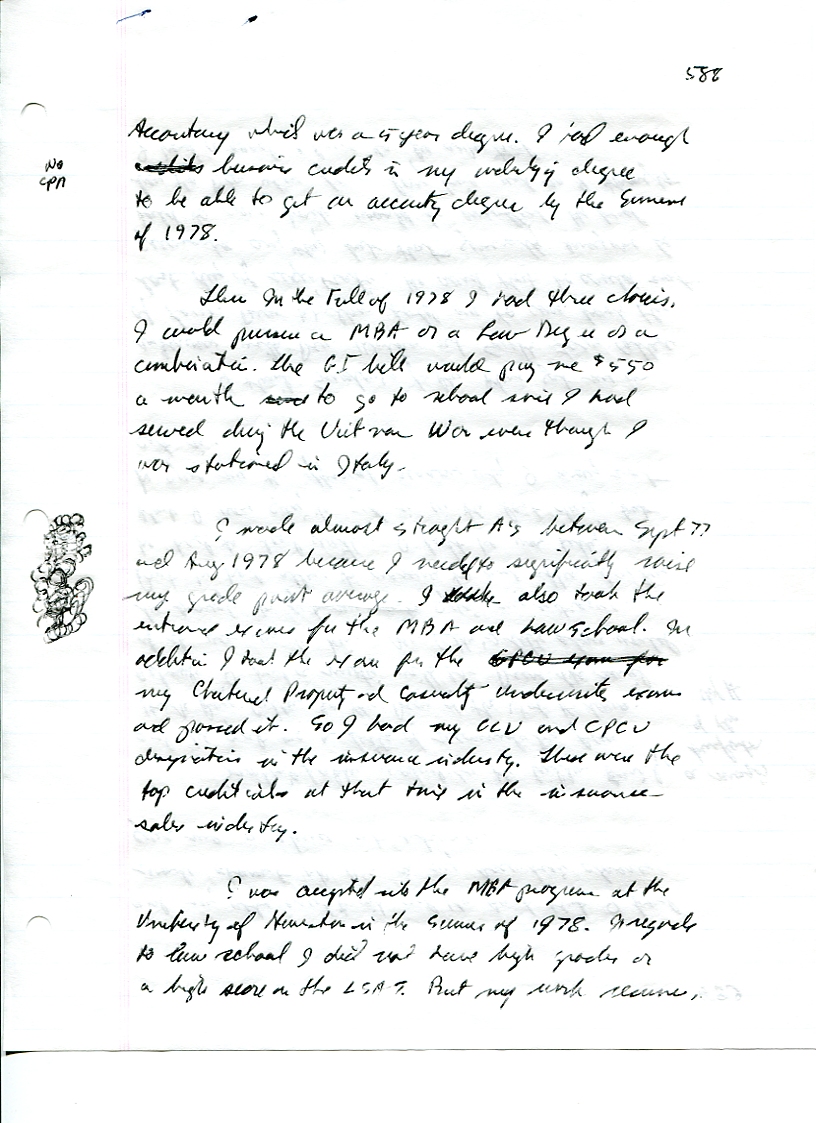 588
Accountancy which was a 5 year degree. I had enough
No
CPA
credits business credits in my marketing degree
to be able to get an accounting degree by the Summer
of 1978.
Then in the Fall of 1978 I had three choices.
I could pursue a MBA or a Law Degree or a
combination. The GI bill would pay me $550
a month to go to school since I had
served during the Viet nam War even though I
was stationed in Italy.
I made almost straight A's between Sept 77
and Aug 1978 because I needed to significantly raise
my grade point average. I also took the
entrance exams for the MBA and Law school. In
addition I took the exam for the CPCU exam for
my Chartered Property and Casualty Underwriters exam
and passed it. So I had my CLU and CPCU
designations in the insurance industry. These were the
top credentials at that time in the insurance
sales industry.
I was accepted into the MBA program at the
University of Houston in the Summer of 1978. In regards
to law school I did not have high grades or
a high score on the LSAT. But my work